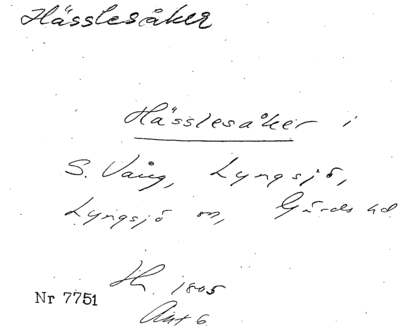 Hässlesåker
Hässlesåker i
S. Vång, Lyngsjö,
Lyngsjö sn, Gärds hd
H. 1805
Akt 6
Nr 7751